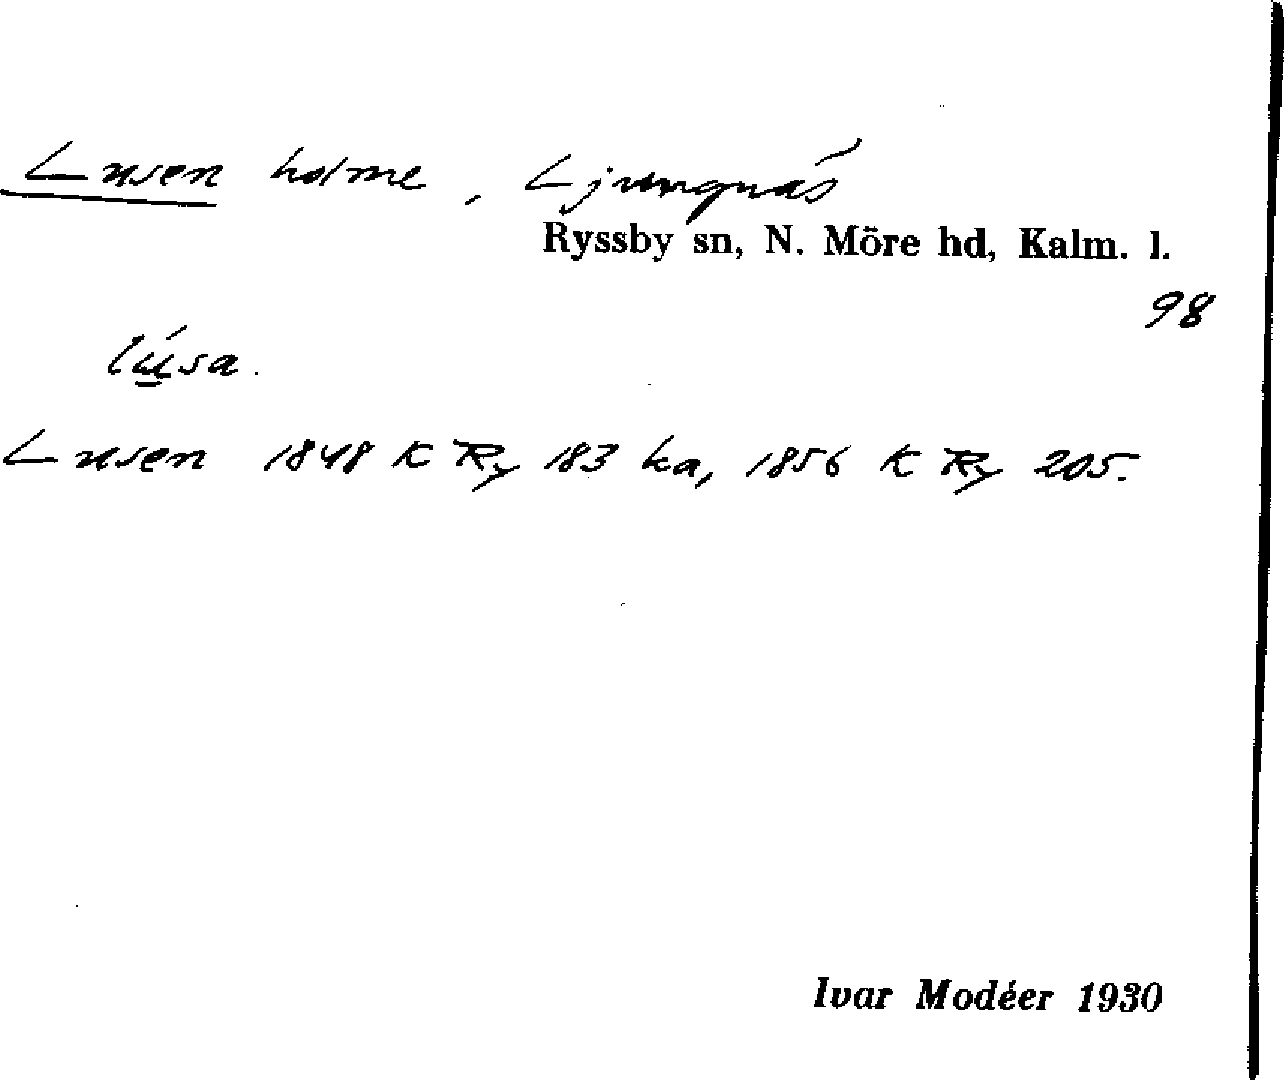 Lusen holme, Ljungnäs
Ryssby sn, N. Möre hd, Kalm. l.
98
lúsa.
Lusen 1848 K Ry 183 ka, 1856 K Ry 205.
Ivar Modéer 1930